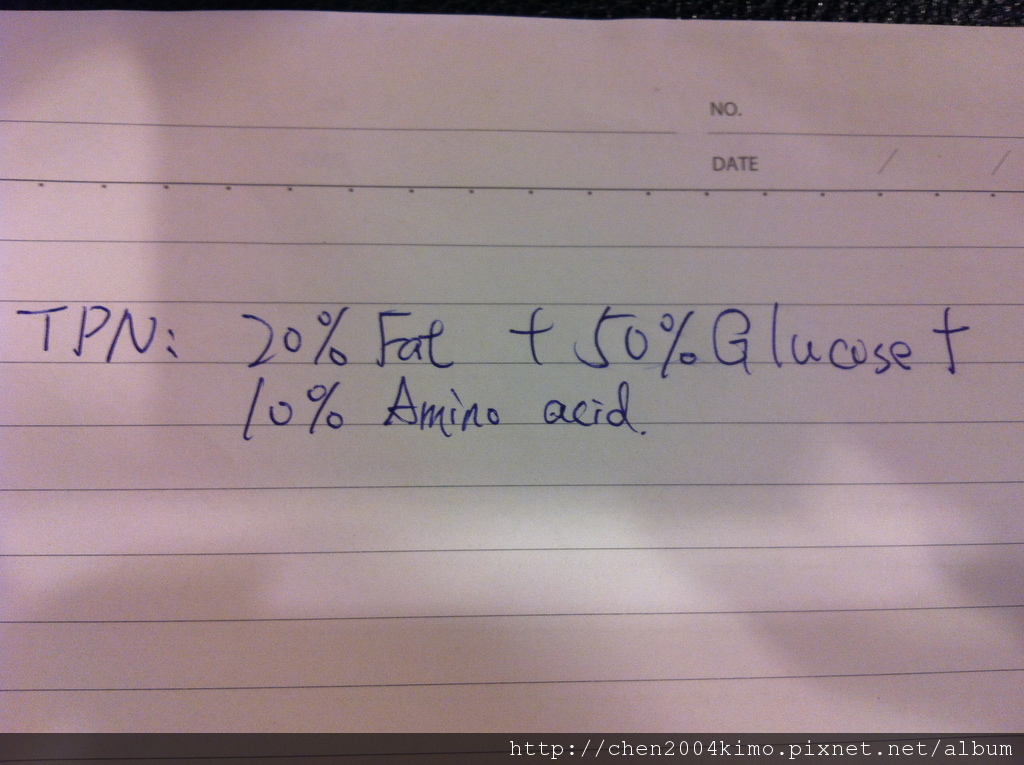 NO.
DATE / /
TPN: 20% Fat + 50% Glucose +
10% Amino acid.
http://chen2004kimo.pixnet.net/album